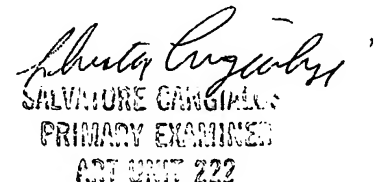 SALVATORE CANGIALOSI
PRIMARY EXAMINER
ART UNIT 222